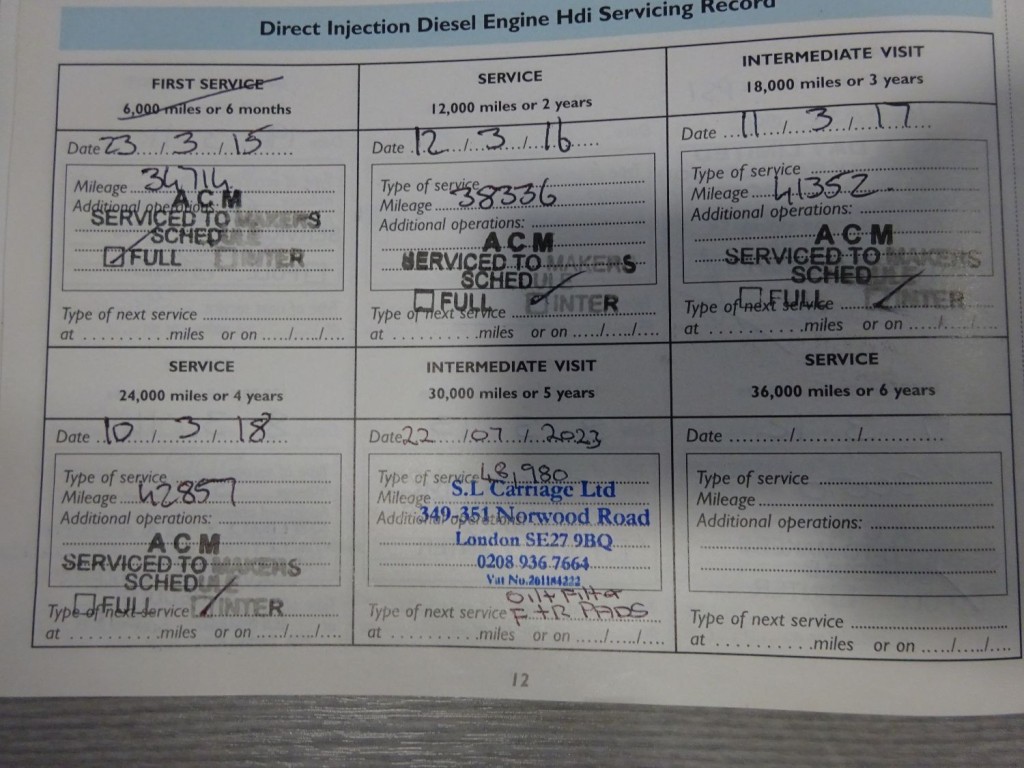 Direct Injection Diesel Engine Hdi Servicing Record
FIRST SERVICE
6,000 miles or 6 months
Date 23/3/15
Mileage 34714
Additional operations:
ACM
SERVICED TO MAKERS
SCHEDULE
FULL INTER
Type of next service
at .......... miles or on ...../...../....
SERVICE
12,000 miles or 2 years
Date 12/3/16
Type of service
Mileage 38336
Additional operations:
ACM
SERVICED TO MAKERS
SCHEDULE
FULL INTER
Type of next service
at .......... miles or on ...../...../....
INTERMEDIATE VISIT
18,000 miles or 3 years
Date 11/3/17
Type of service
Mileage 41352
Additional operations:
ACM
SERVICED TO MAKERS
SCHEDULE
FULL INTER
Type of next service
at .......... miles or on ...../...../....
SERVICE
24,000 miles or 4 years
Date 10/3/18
Type of service
Mileage 42857
Additional operations:
ACM
SERVICED TO MAKERS
SCHEDULE
FULL INTER
Type of next service
at .......... miles or on ...../...../....
INTERMEDIATE VISIT
30,000 miles or 5 years
Date 22/07/2023
Type of service 48,980
Mileage
S.L Carriage Ltd
Additional operations:
349-351 Norwood Road
London SE27 9BQ
0208 936 7664
Vat No.261184222
Oil + Filter
Type of next service F+R PADS
at .......... miles or on ...../...../....
SERVICE
36,000 miles or 6 years
Date ........./........./............
Type of service
Mileage
Additional operations:
Type of next service
at .......... miles or on ...../...../....
12